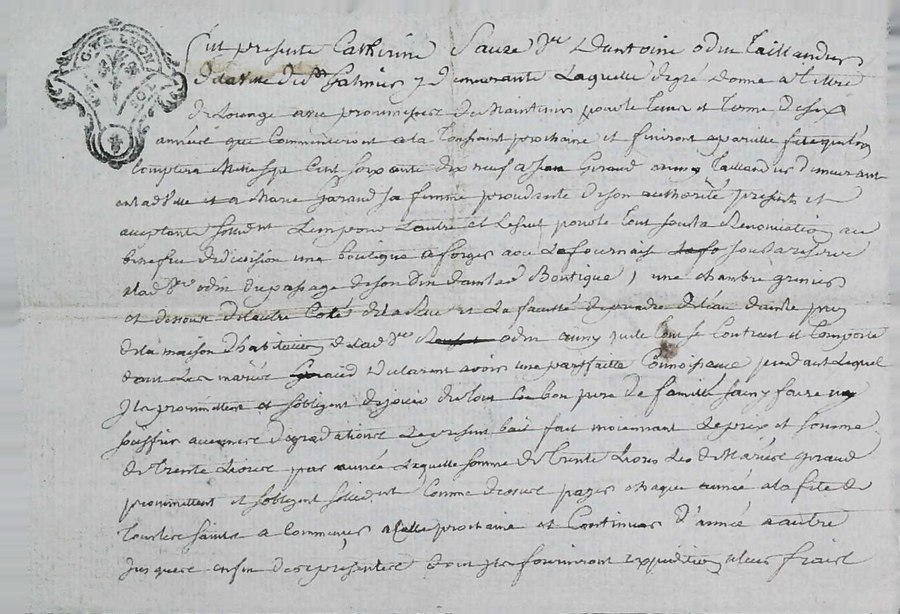 GNE LYON
SOL
Fut presente Catherine Sauze Vve d'antoine odin taillandier
de la ville de st Galmier y demeurante Laquelle de gré donne a titre
de Louage avec promesse de Maintenir pour le tems et terme de six
années que commenceront a la Toussaint prochaine et finiront a pareille fete que l'on
Comptera Mille sept Cent soixante dix neuf a Jean Giraud aussy Taillandier demeurant
en lad Ville et a Marie Garaud sa femme procedante de son authorité presents et
acceptants solidt L'un pour L'autre et Le seul pour le tout sous la Renonciation au
benefice de division une boutique a forges avec La fournaise sous la reserve
a lad Vve odin du passage de son Din dans lad Boutique, une chambre grenier
et dessous de l'autre Coté de la Rue et La faculté de prendre de l'eau dans le puy
de la maison d'habitation de Lad Vve odin ainsy que le tout se Contient et Comporte
dont Les mariés Giraud declarent avoir une parfaitte Connoissance pendant Lequel
Ils promettent et sobligent de jouir du tout en bon pere de famille sans y faire ny
souffrir aucunes degradations Le present bail fait moiennant Le prix et somme
de trente Livres par année Laquelle somme de trente Livres Les d Mariés Giraud
promettent et sobligent solidt Comme dessus payer chaque année a la fete de
Tous les saints a Commencer a Celle prochaine et Continuer d'année a autre
Jusques en fin des presentes dont Ils fourniront expedition a leurs frais